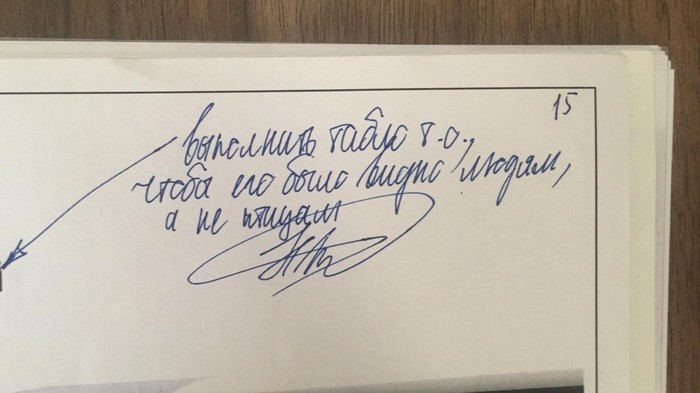 15
выполнить табло т.о.,
чтоб его было видно людям,
а не птицам